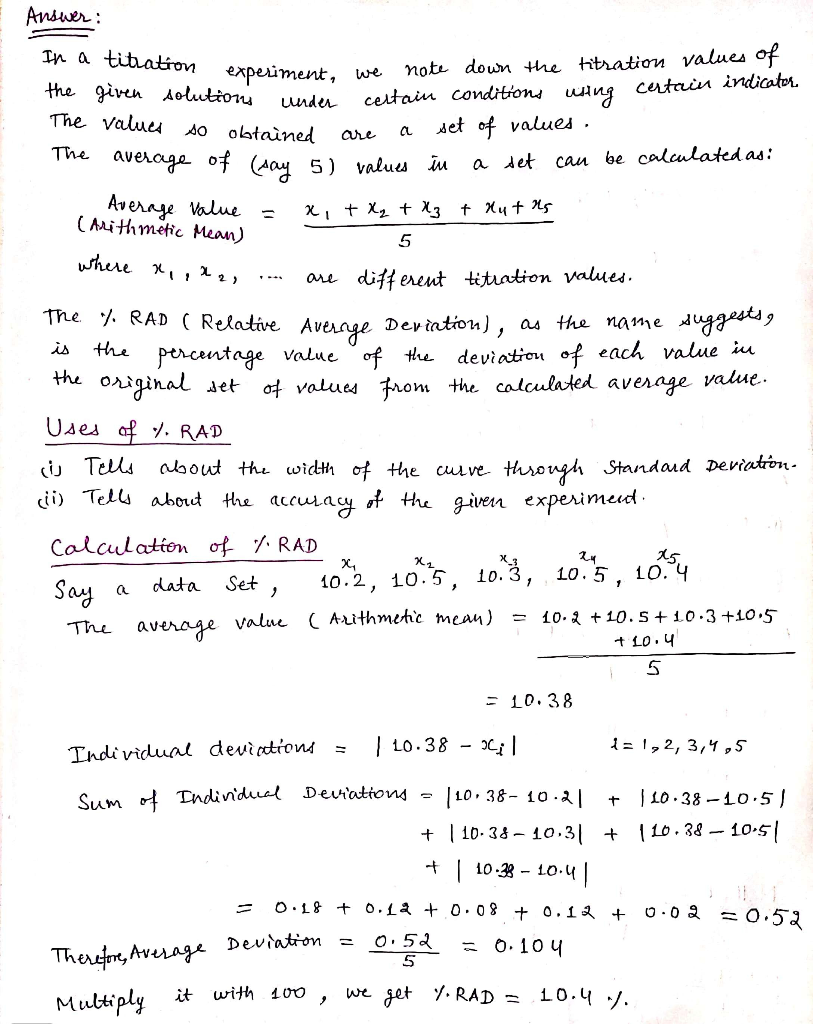 Answer:
In a titration experiment, we note down the titration values of
the given solutions under certain conditions using certain indicator.
The values so obtained are a set of values.
The average of (say 5) values in a set can be calculated as:
Average Value = x₁ + x₂ + x₃ + x₄ + x₅
(Arithmetic Mean) 5
where x₁, x₂, .... are different titration values.
The % RAD (Relative Average Deviation), as the name suggests,
is the percentage value of the deviation of each value in
the original set of values from the calculated average value.
Uses of % RAD
(i) Tells about the width of the curve through Standard Deviation.
(ii) Tells about the accuracy of the given experiment.
Calculation of % RAD
x₁ x₂ x₃ x₄ x₅
Say a data set, 10.2, 10.5, 10.3, 10.5, 10.4
The average value (Arithmetic mean) = 10.2 + 10.5 + 10.3 + 10.5
+ 10.4
5
= 10.38
Individual deviations = | 10.38 - xᵢ | i = 1, 2, 3, 4, 5
Sum of Individual Deviations = |10.38 - 10.2| + |10.38 - 10.5|
+ |10.38 - 10.3| + |10.38 - 10.5|
+ | 10.38 - 10.4 |
= 0.18 + 0.12 + 0.08 + 0.12 + 0.02 = 0.52
Therefore, Average Deviation = 0.52 = 0.104
5
Multiply it with 100, we get % RAD = 10.4 %.